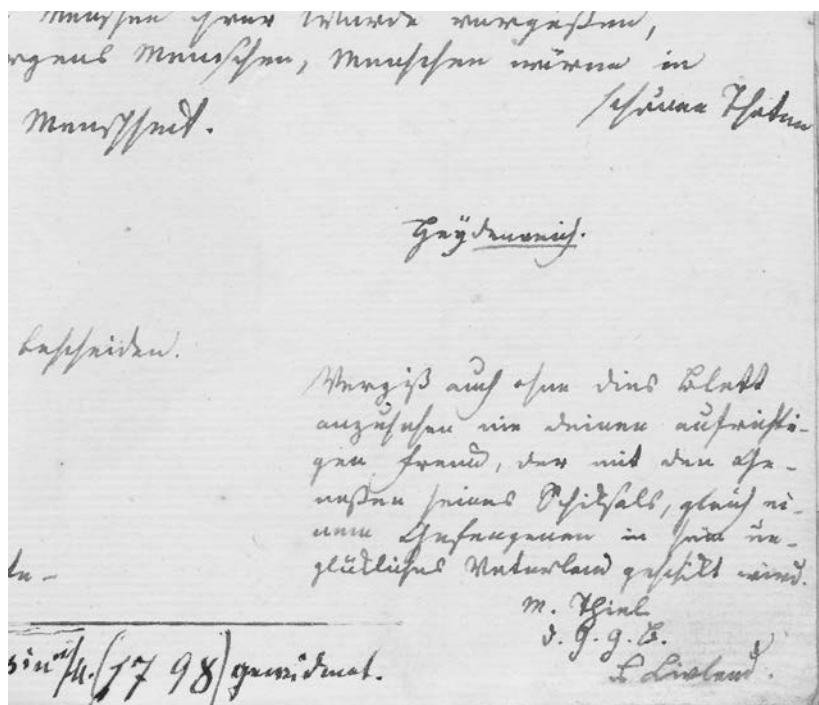 Menschen ihrer Würde vergeßen,
Menschen, Menschen wären in
Menschheit.
schönen Thaten
Heÿdenreich.
bescheiden.
Vergiß auch ohne dies Blatt
anzusehen nie deinen aufrichti-
gen Freund, der mit den Ge-
noßen seines Schiksals, gleich ei-
nem Gefangenen in sein un-
glükliches Vaterland geschikt wird.
M. Thiel
d. G. G. B.
a. Livland.
(1798) gewidmet.